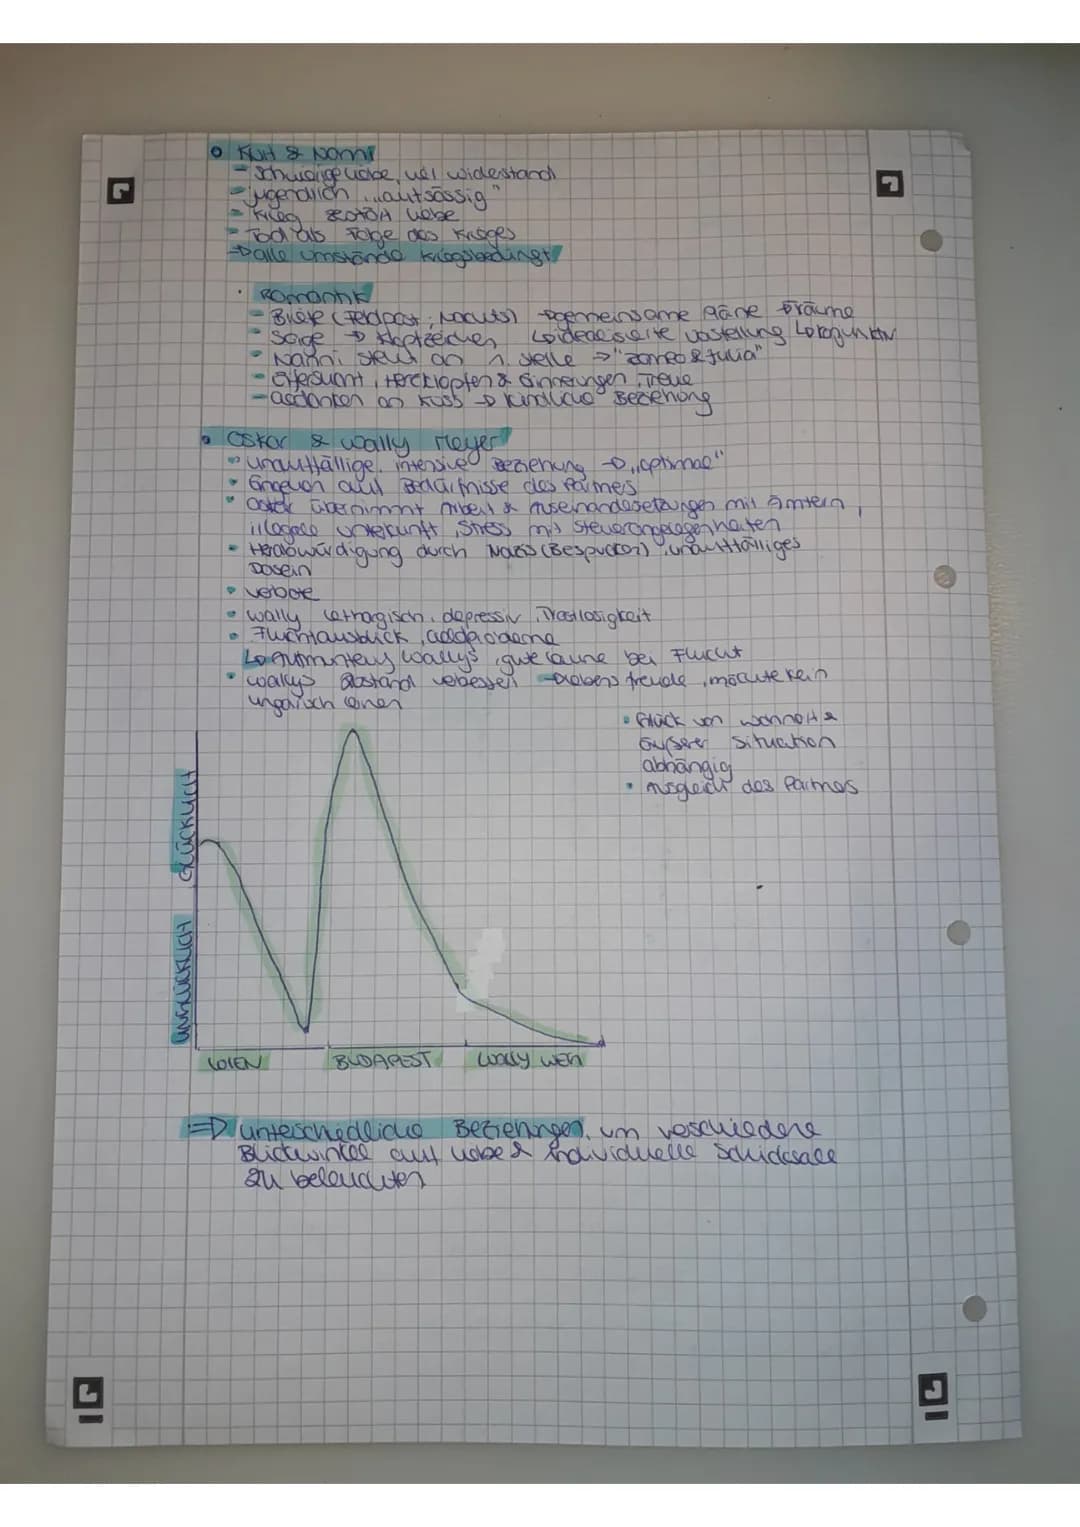 Kurt & Nanni
- Schwierige Liebe, viel Widerstand
- jugendlich, „aufsässig"
- Krieg zerstört Liebe
- Tod als Folge des Krieges
→ alle Umstände kriegsbedingt
Romantik
- Briefe (Feldpost; Nachts) → gemeinsame Pläne → Träume
- Sorge → Klopfzeichen ↳ idealisierte Vorstellung ↳ Konjunktiv
- Nanni steht an 1. Stelle → "Romeo & Julia"
- Eifersucht, Herzklopfen & Erinnerungen, Treue
- Gedanken an Kuss → kindliche Beziehung
Oskar & Wally Meyer
unauffällige, intensive Beziehung → „optimal"
Eingehen auf Bedürfnisse des Partners
Oskar übernimmt Arbeit & Auseinandersetzungen mit Ämtern,
illegale Unterkunft, Stress mit Steuerangelegenheiten
Herabwürdigung durch Nazis (Bespucken), unauffälliges
Dasein
Verbote
Wally lethargisch, depressiv, Trostlosigkeit
Fluchtausblick, Geldprobleme
↳ Wallys, gute Laune bei Flucht
Wallys Zustand verbessert → Lebensfreude, möchte kein
ungarisch lernen
Glück von Wohnort &
äußerer Situation
abhängig
Ausgleich des Partners
GLÜCKLICH
UNGLÜCKLICH
WIEN BUDAPEST WALLY WEG
⇒ unterschiedliche Beziehungen, um verschiedene
Blickwinkel auf Liebe & individuelle Schicksale
zu beleuchten